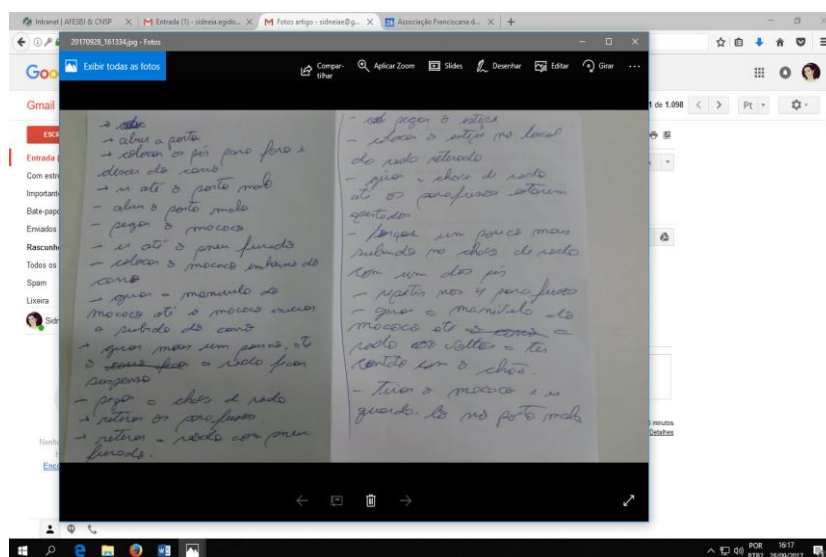 Intranet | AFESBJ & CNSP
Entrada (1) - sidneia.egido...
Fotos artigo - sidneiae@g...
Associação Franciscana d...
20170928_161334.jpg - Fotos
Exibir todas as fotos
Compar-
tilhar
Aplicar Zoom
Slides
Desenhar
Editar
Girar
Goo
Gmail
1 de 1.098
Pt
Entrada (
Com estre
Important
Bate-papo
Enviados
Rascunh
Todos os
Spam
Lixeira
Sidn
→ abrir a porta
→ colocar os pés para fora e
descer do carro
→ ir até o porta mala
- abrir o porta mala
- pegar o macaco
- ir até o pneu furado
- colocar o macaco embaixo do
carro
→ girar a manivela do
macaco até o macaco iniciar
a subida do carro
→ girar mais um pouco, até
o carro ficar a roda ficar
suspensa
- pegar a chave de roda
→ retirar os parafusos
→ retirar a roda com pneu
furado.
- pegar o estepe
- colocar o estepe no local
da roda retirada
- girar a chave de roda
até os parafusos estarem
apertados
- forçar um pouco mais
subindo na chave de roda
com um dos pés
- repetir nos 4 parafusos
- girar a manivela do
macaco até o carro a
roda voltar a ter
contato com o chão.
- tirar o macaco e ir
guardá-lo no porta mala
minutos
Detalhes
POR
PTB2
16:17
28/09/2017